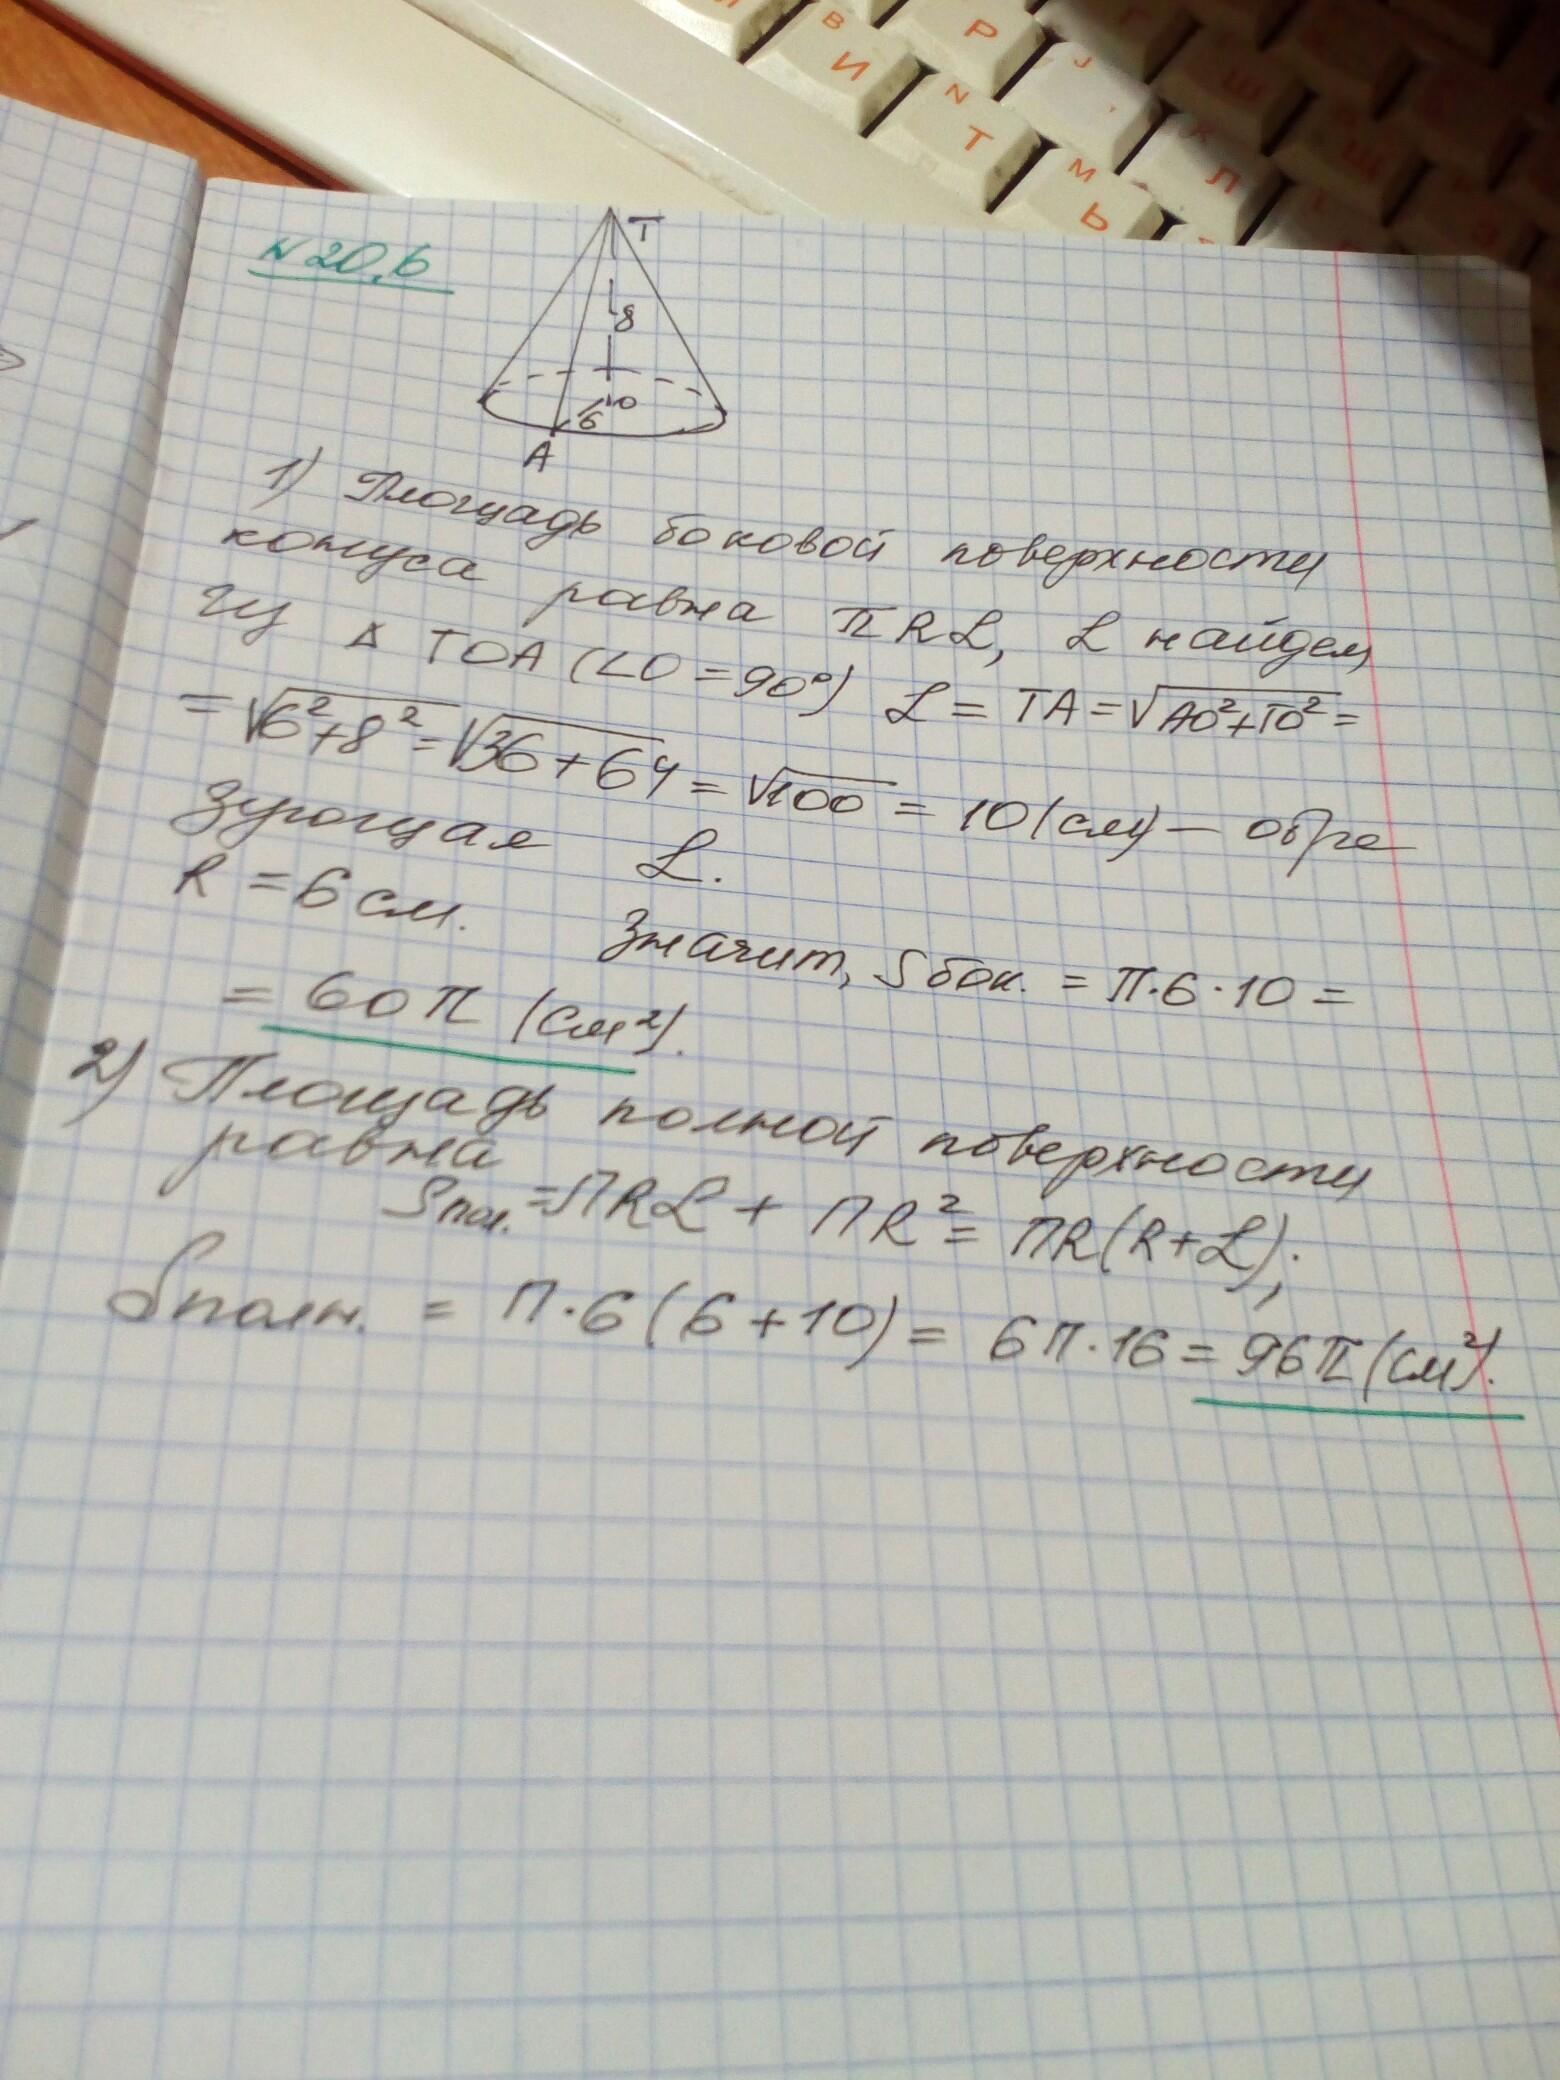 И
В
И
Р
N
Т
М
Ь
J
Л
Ш
N 20.6
Т
8
6
О
А
1) Площадь боковой поверхности
конуса равна πRL, L найдем
из Δ TOA (∠O = 90°) L = TA = √AO²+TO² =
= √6²+8² = √36+64 = √100 = 10 (см) – обра
зующая L.
R = 6 см. Значит, Sбок. = π·6·10 =
= 60π (см²).
2) Площадь полной поверхности
равна
Sпол. = πRL + πR² = πR(R+L);
Sполн. = π·6(6+10) = 6π·16 = 96π (см²).